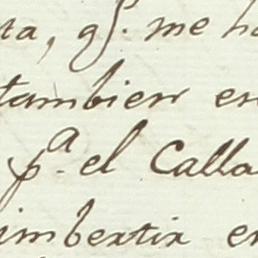 ta, qͤ. me ha
tambien en
pᵃ. el Calla
imbertir en